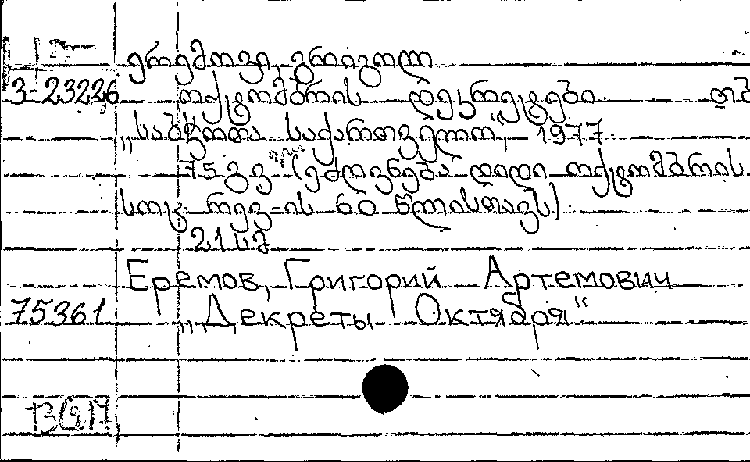 ერემოვი, გრიგოლ
3-23226 ოქტომბრის დეკრეტები თბ
„საბჭოთა საქართველო", 1977
75 გვ. (ეძღვნება დიდი ოქტომბრის
სოც. რევ-ის 60 წლისთავს)
21 კპ
Еремов, Григорий Артемович
75361 „Декреты Октября"